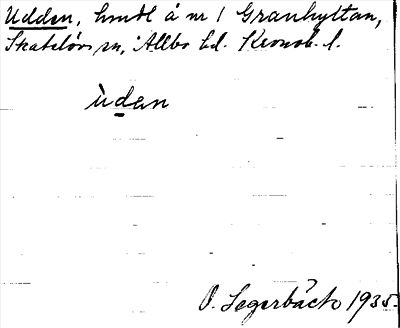 Udden, hmdl å nr 1 Granhyttan,
Skatelövs sn, Allbo hd. Kronob. l.
ùden
O. Segerbäck 1935.